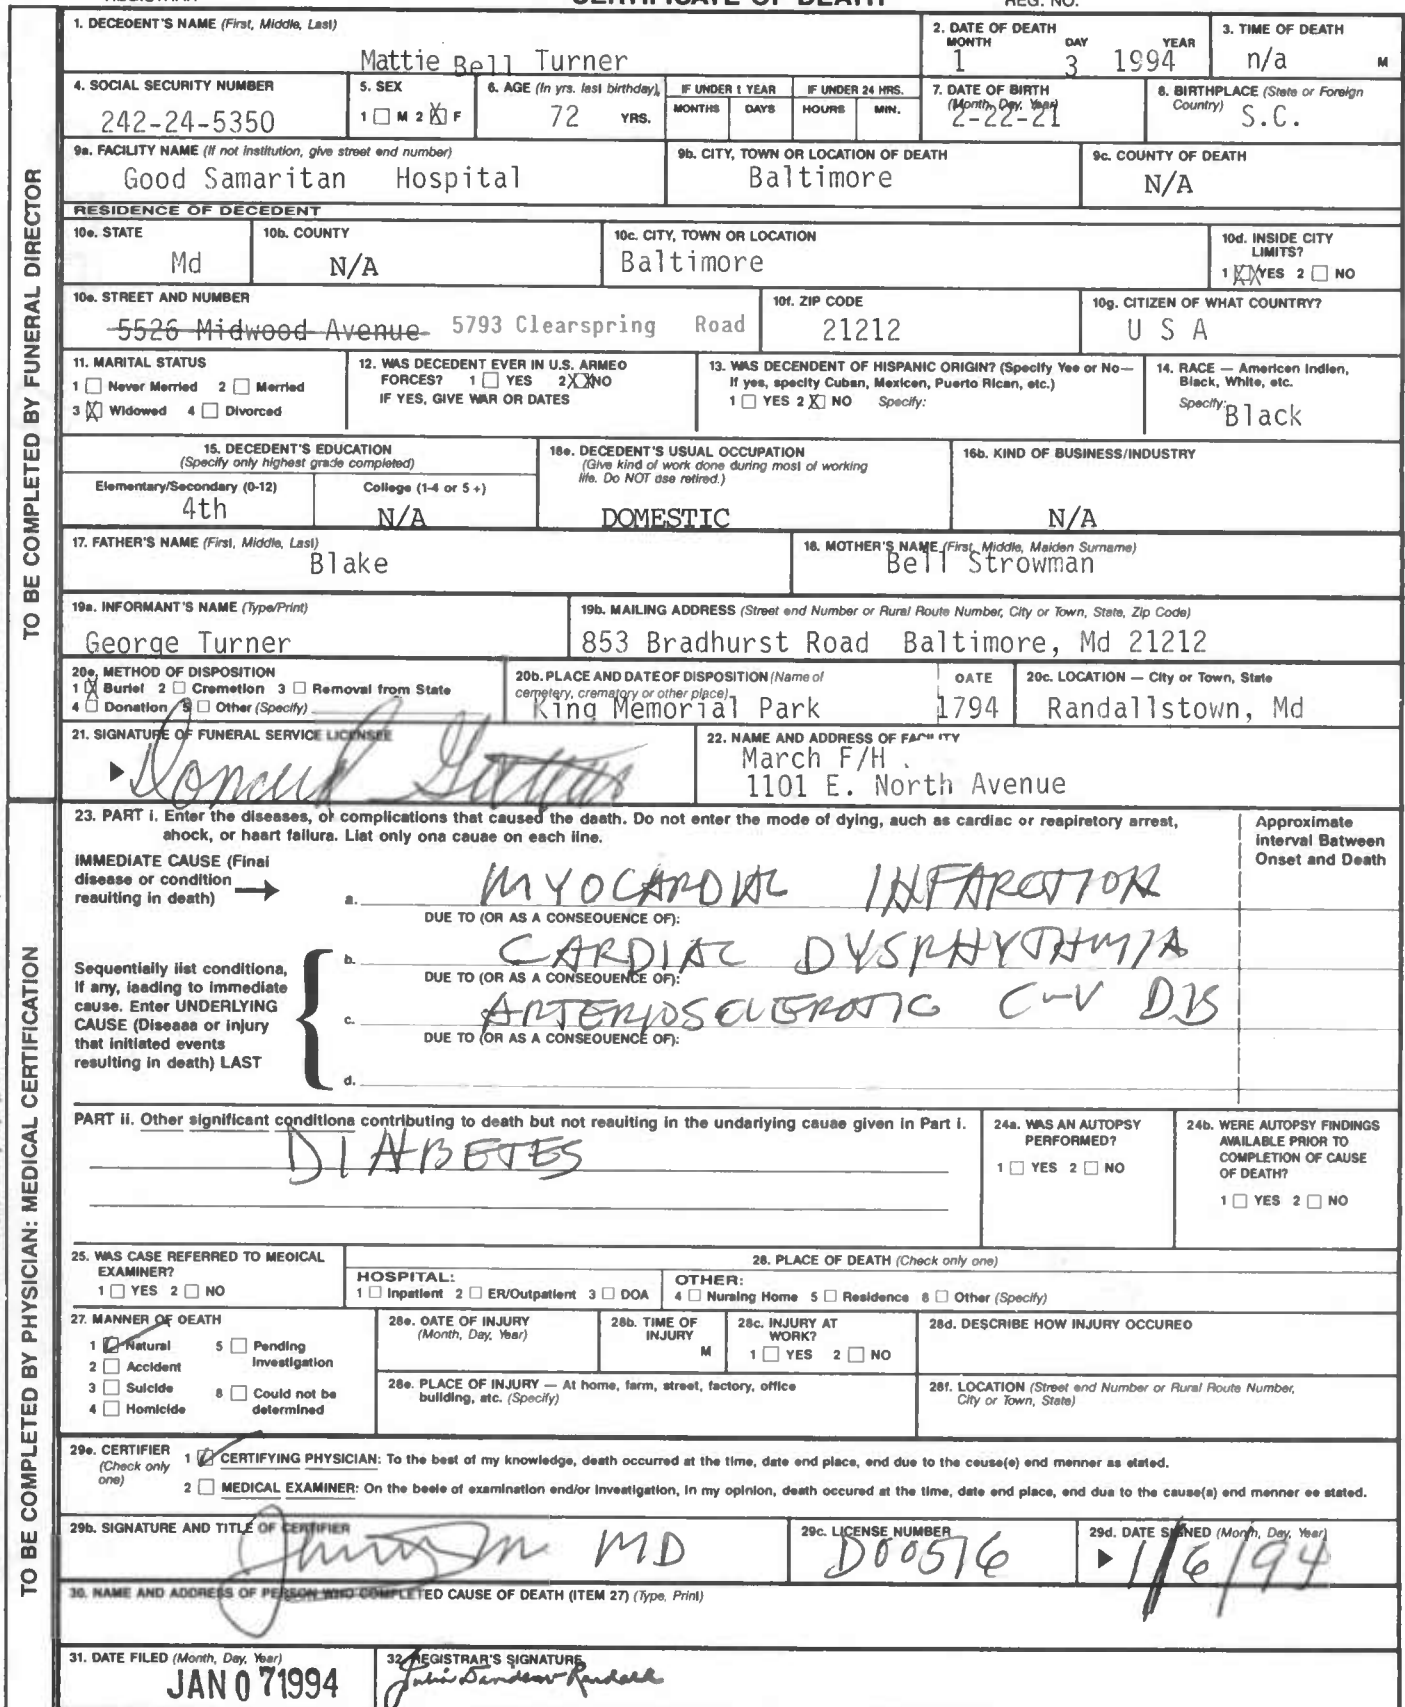 CERTIFICATE OF DEATH
REG. NO.
TO BE COMPLETED BY FUNERAL DIRECTOR
1. DECEDENT'S NAME (First, Middle, Last)
Mattie Bell Turner
2. DATE OF DEATH
MONTH DAY YEAR
1 3 1994
3. TIME OF DEATH
n/a M
4. SOCIAL SECURITY NUMBER
242-24-5350
5. SEX
1 ☐ M 2 ☒ F
6. AGE (In yrs. last birthday)
72 YRS.
IF UNDER 1 YEAR
MONTHS DAYS
IF UNDER 24 HRS.
HOURS MIN.
7. DATE OF BIRTH
(Month, Day, Year)
2-22-21
8. BIRTHPLACE (State or Foreign
Country)
S.C.
9a. FACILITY NAME (If not institution, give street end number)
Good Samaritan Hospital
9b. CITY, TOWN OR LOCATION OF DEATH
Baltimore
9c. COUNTY OF DEATH
N/A
RESIDENCE OF DECEDENT
10e. STATE
Md
10b. COUNTY
N/A
10c. CITY, TOWN OR LOCATION
Baltimore
10d. INSIDE CITY
LIMITS?
1 XX YES 2 ☐ NO
10e. STREET AND NUMBER
5526 Midwood Avenue 5793 Clearspring Road
10f. ZIP CODE
21212
10g. CITIZEN OF WHAT COUNTRY?
U S A
11. MARITAL STATUS
1 ☐ Never Merried 2 ☐ Merried
3 ☒ Widowed 4 ☐ Divorced
12. WAS DECEDENT EVER IN U.S. ARMEO
FORCES? 1 ☐ YES 2 XX NO
IF YES, GIVE WAR OR DATES
13. WAS DECENDENT OF HISPANIC ORIGIN? (Specify Yee or No—
If yes, specify Cuban, Mexicen, Puerto Rican, etc.)
1 ☐ YES 2 ☒ NO Specify:
14. RACE — Americen Indien,
Bleck, White, etc.
Specify: Black
15. DECEDENT'S EDUCATION
(Specify only highest grade completed)
Elementary/Secondary (0-12)
4th
College (1-4 or 5 +)
N/A
16e. DECEDENT'S USUAL OCCUPATION
(Give kind of work done during most of working
life. Do NOT use retired.)
DOMESTIC
16b. KIND OF BUSINESS/INDUSTRY
N/A
17. FATHER'S NAME (First, Middle, Last)
Blake
18. MOTHER'S NAME (First, Middle, Maiden Surname)
Bell Strowman
19a. INFORMANT'S NAME (Type/Print)
George Turner
19b. MAILING ADDRESS (Street end Number or Rural Route Number, City or Town, State, Zip Code)
853 Bradhurst Road Baltimore, Md 21212
20e. METHOD OF DISPOSITION
1 ☒ Buriel 2 ☐ Cremetion 3 ☐ Removal from State
4 ☐ Donation 5 ☐ Other (Specify)
20b. PLACE AND DATE OF DISPOSITION (Name of
cemetery, crematory or other place)
King Memorial Park
DATE
1794
20c. LOCATION — City or Town, State
Randallstown, Md
21. SIGNATURE OF FUNERAL SERVICE LICENSEE
22. NAME AND ADDRESS OF FACILITY
March F/H .
1101 E. North Avenue
TO BE COMPLETED BY PHYSICIAN: MEDICAL CERTIFICATION
23. PART i. Enter the diseases, or complications that caused the death. Do not enter the mode of dying, such as cardiac or respiretory arrest,
shock, or heart failura. List only one cause on each line.
Approximate
interval Between
Onset and Death
IMMEDIATE CAUSE (Final
disease or condition
resulting in death)
a. MYOCARDIAL INFARCTION
DUE TO (OR AS A CONSEQUENCE OF):
b. CARDIAC DYSRHYTHMIA
DUE TO (OR AS A CONSEQUENCE OF):
c. ARTERIOSCLEROTIC C-V DIS
DUE TO (OR AS A CONSEQUENCE OF):
d.
Sequentially list conditions,
If any, leading to immediate
cause. Enter UNDERLYING
CAUSE (Disease or injury
that initiated events
resulting in death) LAST
PART ii. Other significant conditions contributing to death but not resulting in the underlying cause given in Part i.
DIABETES
24a. WAS AN AUTOPSY
PERFORMED?
1 ☐ YES 2 ☐ NO
24b. WERE AUTOPSY FINDINGS
AVAILABLE PRIOR TO
COMPLETION OF CAUSE
OF DEATH?
1 ☐ YES 2 ☐ NO
25. WAS CASE REFERRED TO MEOICAL
EXAMINER?
1 ☐ YES 2 ☐ NO
26. PLACE OF DEATH (Check only one)
HOSPITAL:
1 ☐ Inpatient 2 ☐ ER/Outpatient 3 ☐ DOA
OTHER:
4 ☐ Nursing Home 5 ☐ Residence 6 ☐ Other (Specify)
27. MANNER OF OEATH
1 ☑ Natural 5 ☐ Pending
Investigation
2 ☐ Accident
3 ☐ Suicide 8 ☐ Could not be
determined
4 ☐ Homicide
28e. OATE OF INJURY
(Month, Day, Year)
28b. TIME OF
INJURY
M
28c. INJURY AT
WORK?
1 ☐ YES 2 ☐ NO
28d. DESCRIBE HOW INJURY OCCUREO
28e. PLACE OF INJURY — At home, farm, street, factory, office
building, etc. (Specify)
28f. LOCATION (Street end Number or Rural Route Number,
City or Town, State)
29e. CERTIFIER
(Check only
one)
1 ☑ CERTIFYING PHYSICIAN: To the best of my knowledge, death occurred at the time, date end place, end due to the ceuse(e) end menner as eteted.
2 ☐ MEDICAL EXAMINER: On the beele of examination end/or Investigation, in my opinion, death occured at the time, date end place, end dua to the cause(a) end menner ee stated.
29b. SIGNATURE AND TITLE OF CERTIFIER
MD
29c. LICENSE NUMBER
D00576
29d. DATE SIGNED (Month, Day, Year)
1/6/94
30. NAME AND ADDRESS OF PERSON WHO COMPLETED CAUSE OF DEATH (ITEM 27) (Type, Print)
31. DATE FILED (Month, Day, Year)
JAN 07 1994
32. REGISTRAR'S SIGNATURE